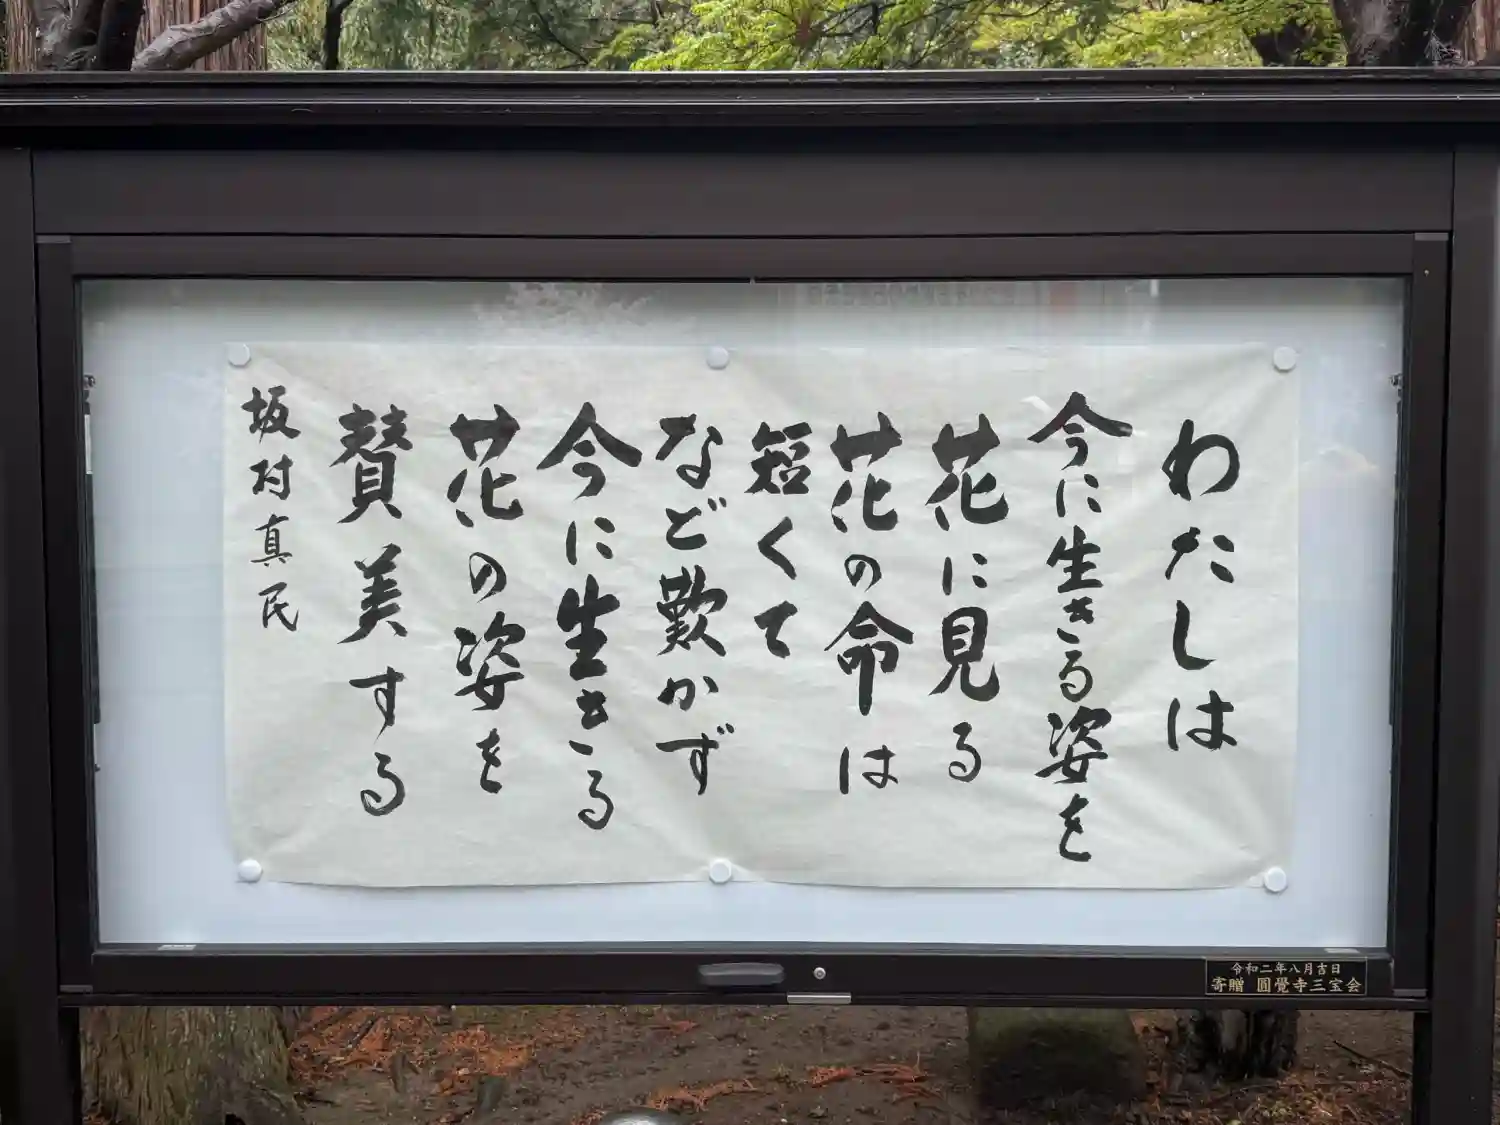 わたしは
今に生きる姿を
花に見る
花の命は
短くて
など歎かず
今に生きる
花の姿を
賛美する
坂村真民
令和二年八月吉日
寄贈 圓覺寺三宝会